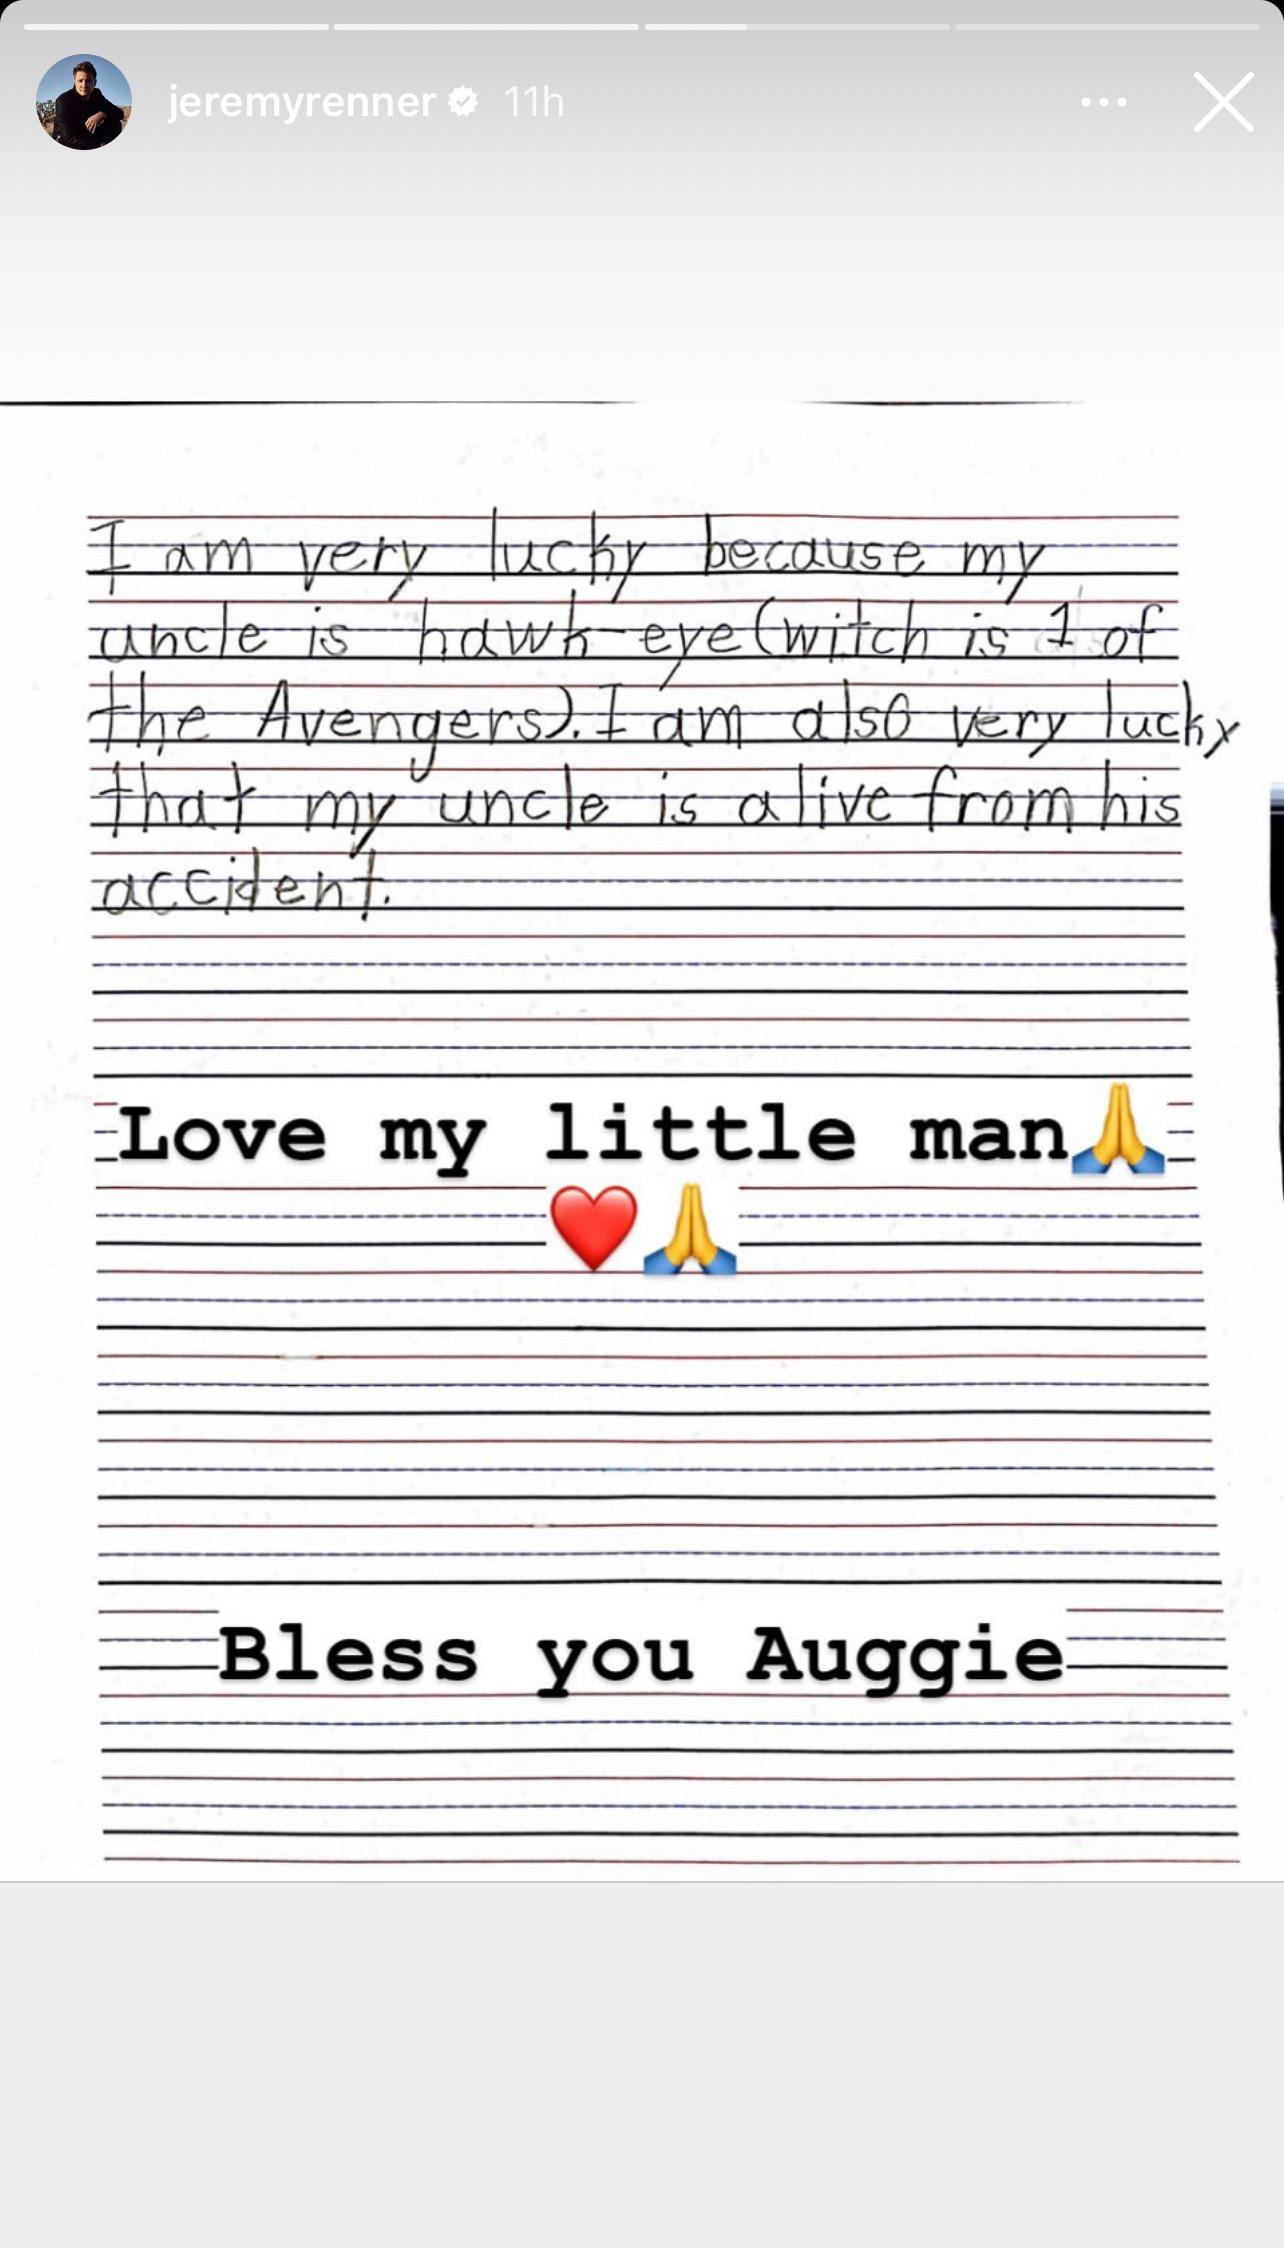 jeremyrenner 11h
I am very lucky because my
uncle is hawk-eye (witch is 1 of
the Avengers). I am also very lucky
that my uncle is alive from his
accident.
Love my little man🙏
❤️🙏
Bless you Auggie